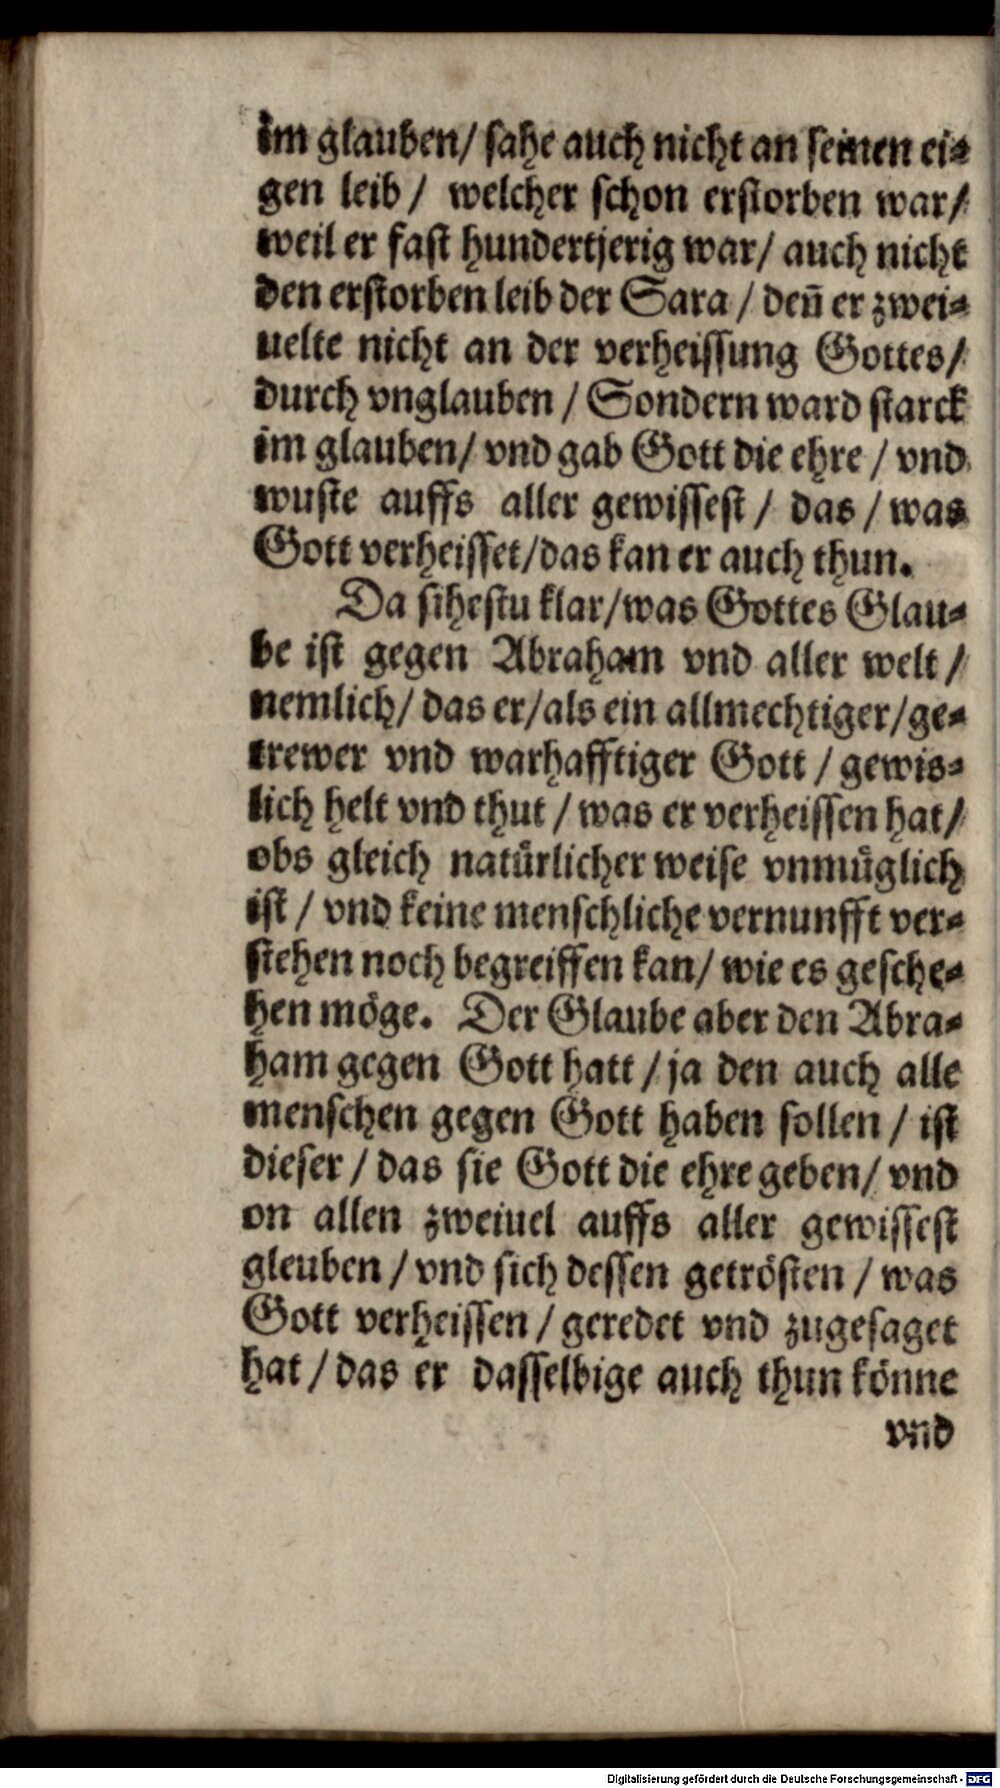 im glauben/ sahe auch nicht an seinen ei⸗
gen leib / welcher schon erstorben war/
weil er fast hundertjerig war/ auch nicht
den erstorben leib der Sara / deñ er zwei⸗
uelte nicht an der verheissung Gottes/
durch vnglauben / Sondern ward starck
im glauben/ vnd gab Gott die ehre / vnd
wuste auffs aller gewissest / das / was
Gott verheisset/das kan er auch thun.
Da sihestu klar/was Gottes Glau⸗
be ist gegen Abraham vnd aller welt /
nemlich/ das er/als ein allmechtiger/ge⸗
trewer vnd warhafftiger Gott / gewis⸗
lich helt vnd thut / was er verheissen hat/
obs gleich natürlicher weise vnmüglich
ist / vnd keine menschliche vernunfft ver⸗
stehen noch begreiffen kan/ wie es gesche⸗
hen möge. Der Glaube aber den Abra⸗
ham gegen Gott hatt / ja den auch alle
menschen gegen Gott haben sollen / ist
dieser / das sie Gott die ehre geben/ vnd
on allen zweiuel auffs aller gewissest
gleuben / vnd sich dessen getrösten / was
Gott verheissen / geredet vnd zugesaget
hat / das er dasselbige auch thun könne
vnd
Digitalisierung gefördert durch die Deutsche Forschungsgemeinschaft - DFG